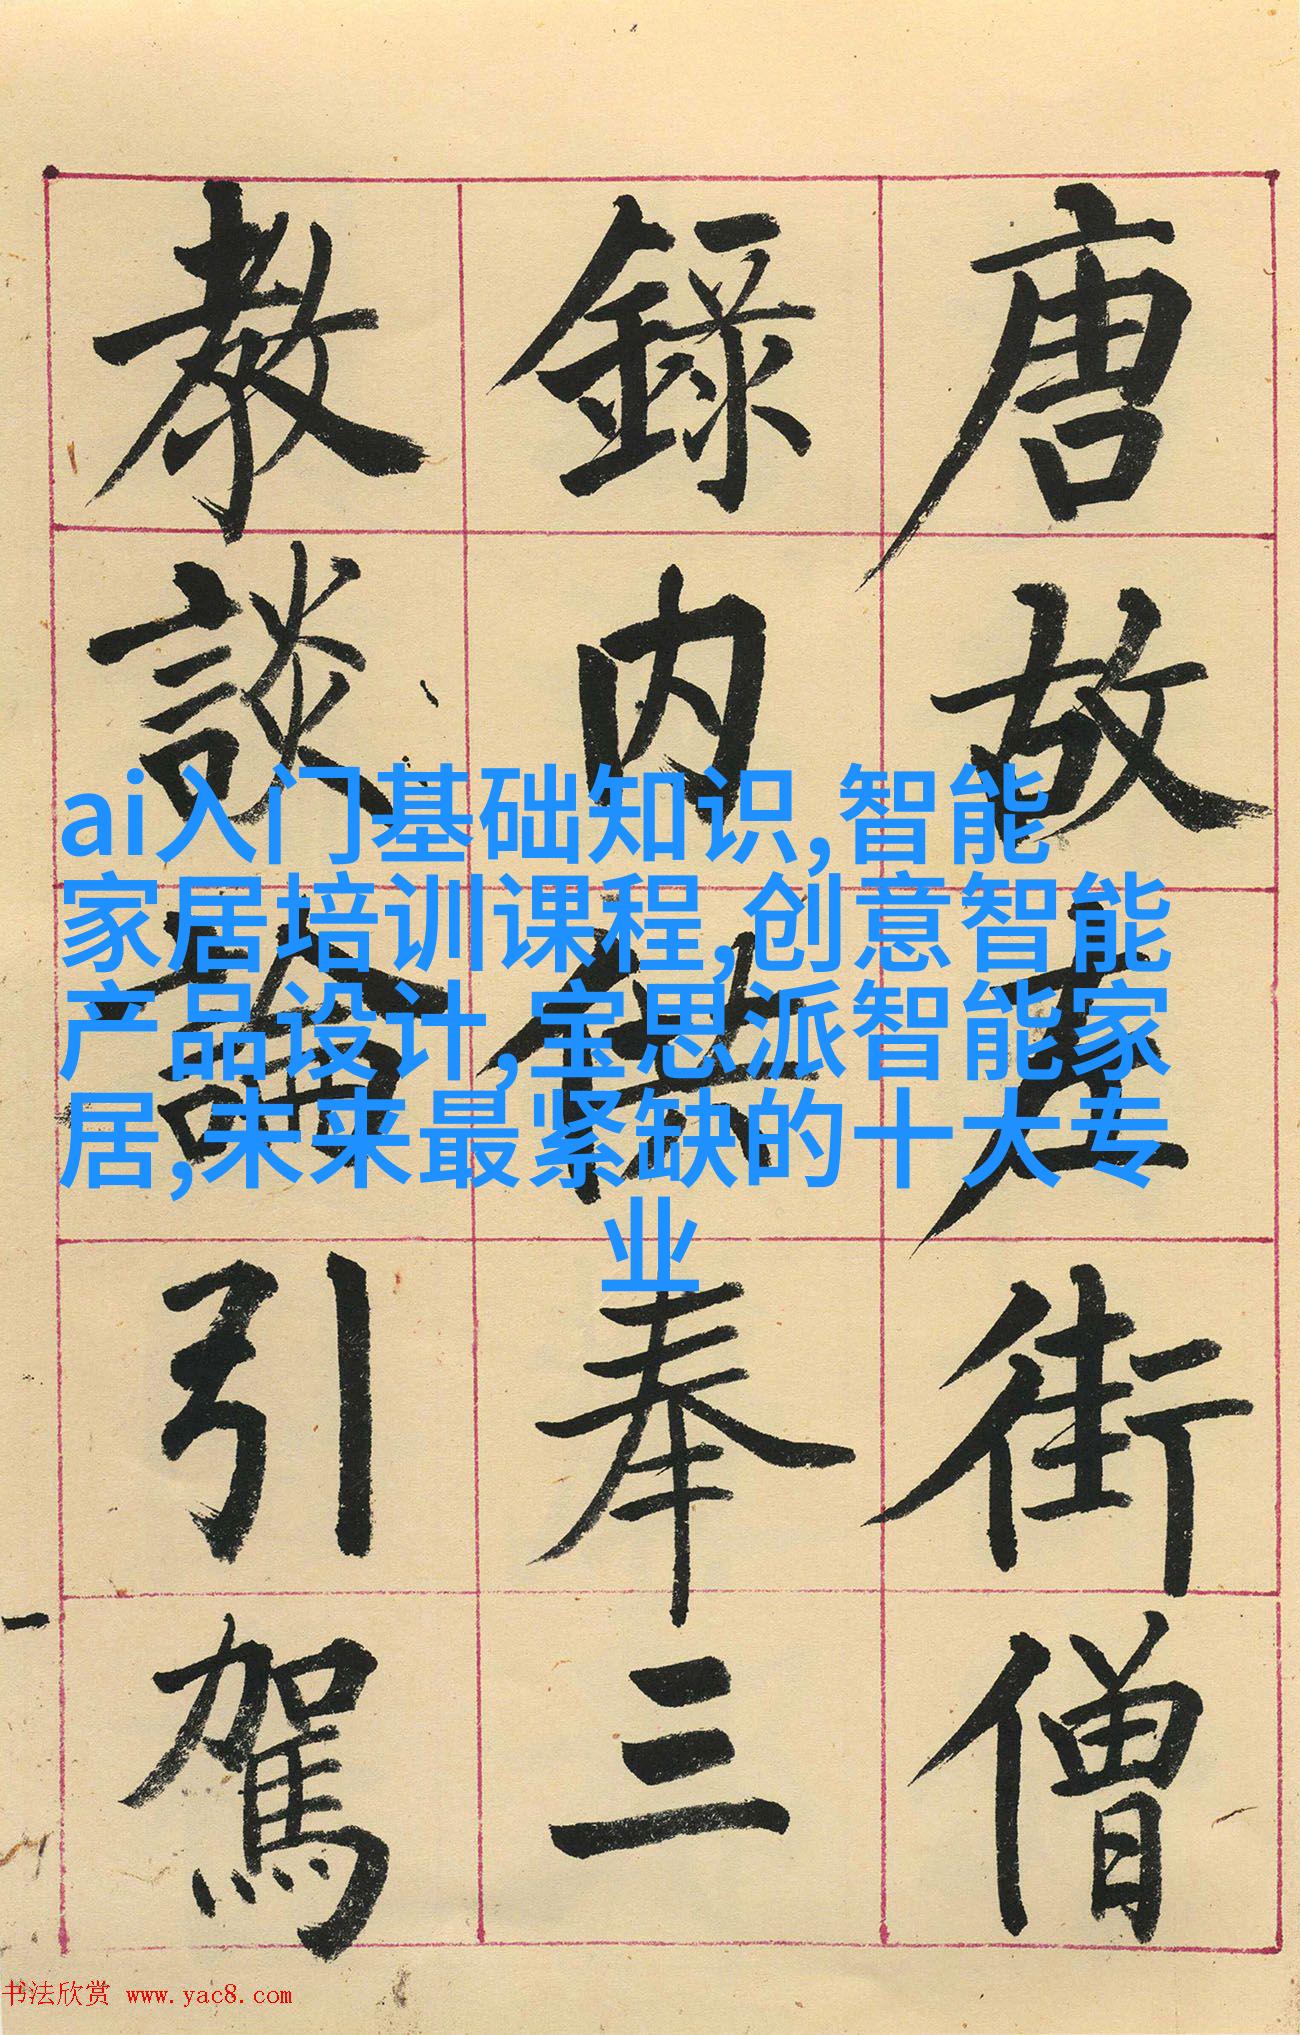 唐故左街僧
錄内供奉三
教談論引駕
ai入门基础知识,智能
家居培训课程,创意智能
产品设计,宝思派智能家
居,未来最紧缺的十大专
业
书法欣赏 www.yac8.com